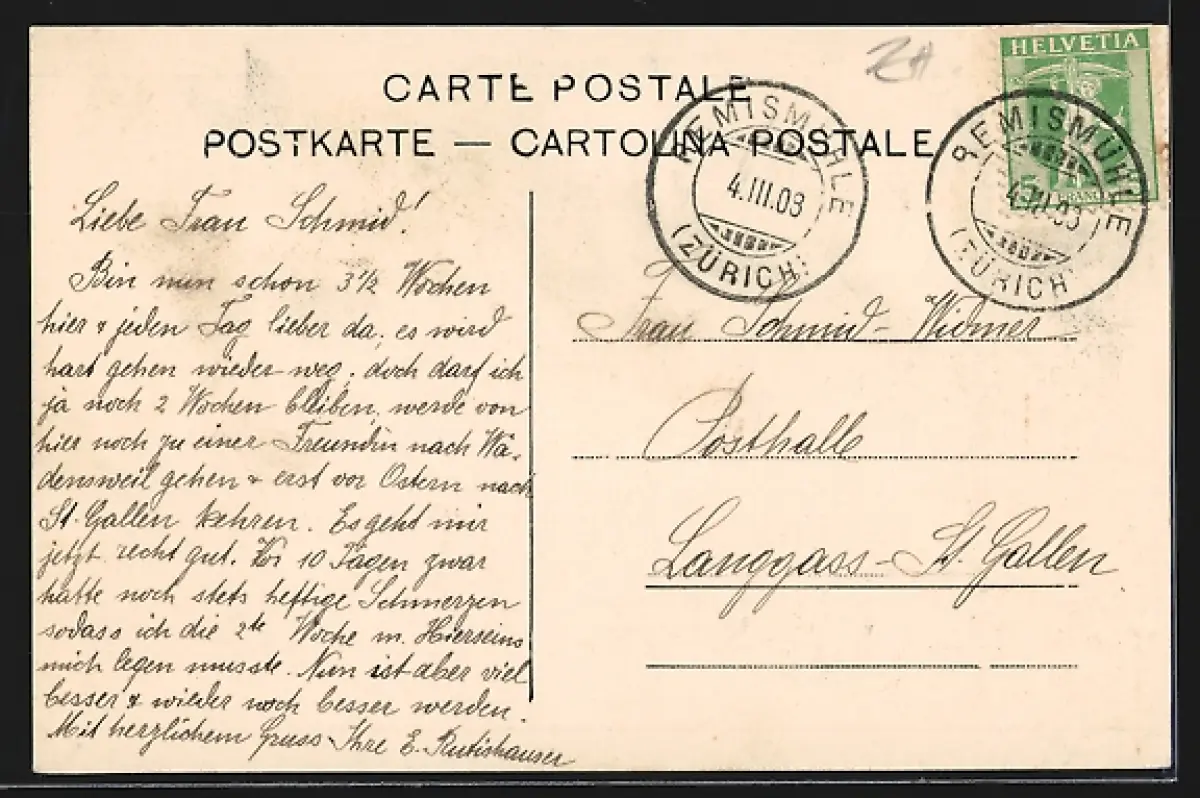 ZH
HELVETIA
CARTE POSTALE
POSTKARTE — CARTOLINA POSTALE
REMISMÜHLE
4.III.08
(ZÜRICH)
REMISMÜHLE
4.III.08
(ZÜRICH)
5
FRANCO
Liebe Frau Schmid!
Bin nun schon 3 1/2 Wochen
hier & jeden Tag lieber da; es wird
hart gehen wieder weg, doch darf ich
ja noch 2 Wochen bleiben, werde von
hier noch zu einer Freundin nach Wä-
densweil gehen & erst vor Ostern nach
St. Gallen kehren. Es geht mir
jetzt recht gut. Vor 10 Tagen zwar
hatte noch stets heftige Schmerzen
sodass ich die 2te Woche m. Hierseins
mich legen musste. Nun ist aber viel
besser & wieder noch besser werden.
Mit herzlichem Gruss Ihre E. Rutishauser
Frau Schmid-Widmer
Posthalle
Langgass-St. Gallen